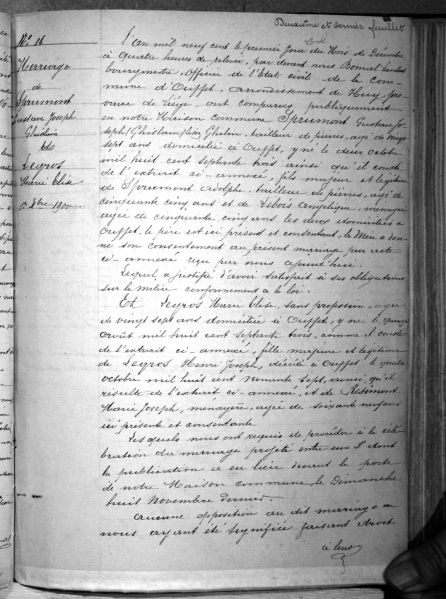 Deuxième et dernier feuillet
N° 16
Mariage
de
Spreumont
Gustave Joseph
Ghislain
et de
Legros
Marie Elise
1er Xbre 1900
L'an mil neuf cent le premier jour du mois de Décembre
à quatre heures de relevée, par devant nous
bourgmestre, Officier de l'Etat civil de la Com
mune d'Ouffet, arrondissement de Huy, pro
vince de Liège, ont comparu publiquement
en notre Maison commune Spreumont Gustave Jo
seph Ghislain, tailleur de pierres, âgé de vingt
sept ans domicilié à Ouffet, y né le deux octobre
mil huit cent septante trois ainsi qu'il conste
de l'extrait ci-annexé, fils majeur et légitime
de Spreumont Adolphe, tailleur de pierres, âgé de
cinquante cinq ans et de Angélique, ménagère
âgée de cinquante cinq ans les deux domiciliés à
Ouffet, le père est ici présent et consentant, la Mère a don
né son consentement au présent mariage par acte
ci-annexé reçu par nous
Lequel a justifié d'avoir satisfait à ses obligations
sur la milice conformément à la loi.
Et Legros Marie Elise, sans profession, âgée
de vingt sept ans domiciliée à Ouffet, y née le quinze
août mil huit cent septante trois, comme il conste
de l'extrait ci-annexé, fille majeure et légitime
de Legros Henri Joseph, décédé à Ouffet le quatre
octobre mil huit cent nonante sept, ainsi qu'il
résulte de l'extrait ci-annexé, et de
Marie Joseph, ménagère, âgée de soixante neuf ans
ici présente et consentante.
Lesquels nous ont requis de procéder à la célé
bration du mariage projeté entre eux et dont
la publication a eu lieu devant la porte
de notre Maison commune le Dimanche
huit Novembre dernier.
Aucune opposition au dit mariage ne
nous ayant été signifiée faisant droit
à leur